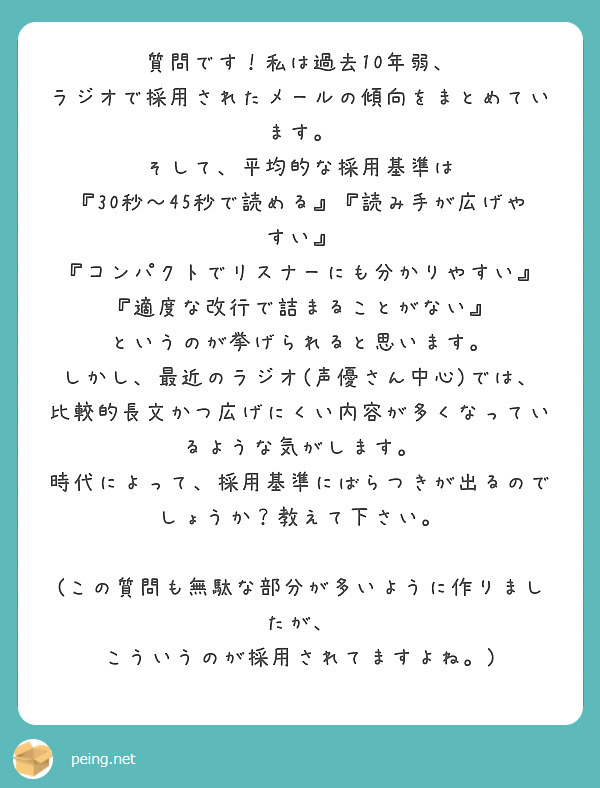 質問です！私は過去10年弱、
ラジオで採用されたメールの傾向をまとめてい
ます。
そして、平均的な採用基準は
『30秒〜45秒で読める』『読み手が広げや
すい』
『コンパクトでリスナーにも分かりやすい』
『適度な改行で詰まることがない』
というのが挙げられると思います。
しかし、最近のラジオ(声優さん中心)では、
比較的長文かつ広げにくい内容が多くなってい
るような気がします。
時代によって、採用基準にばらつきが出るので
しょうか？教えて下さい。
(この質問も無駄な部分が多いように作りまし
たが、
こういうのが採用されてますよね。)
peing.net